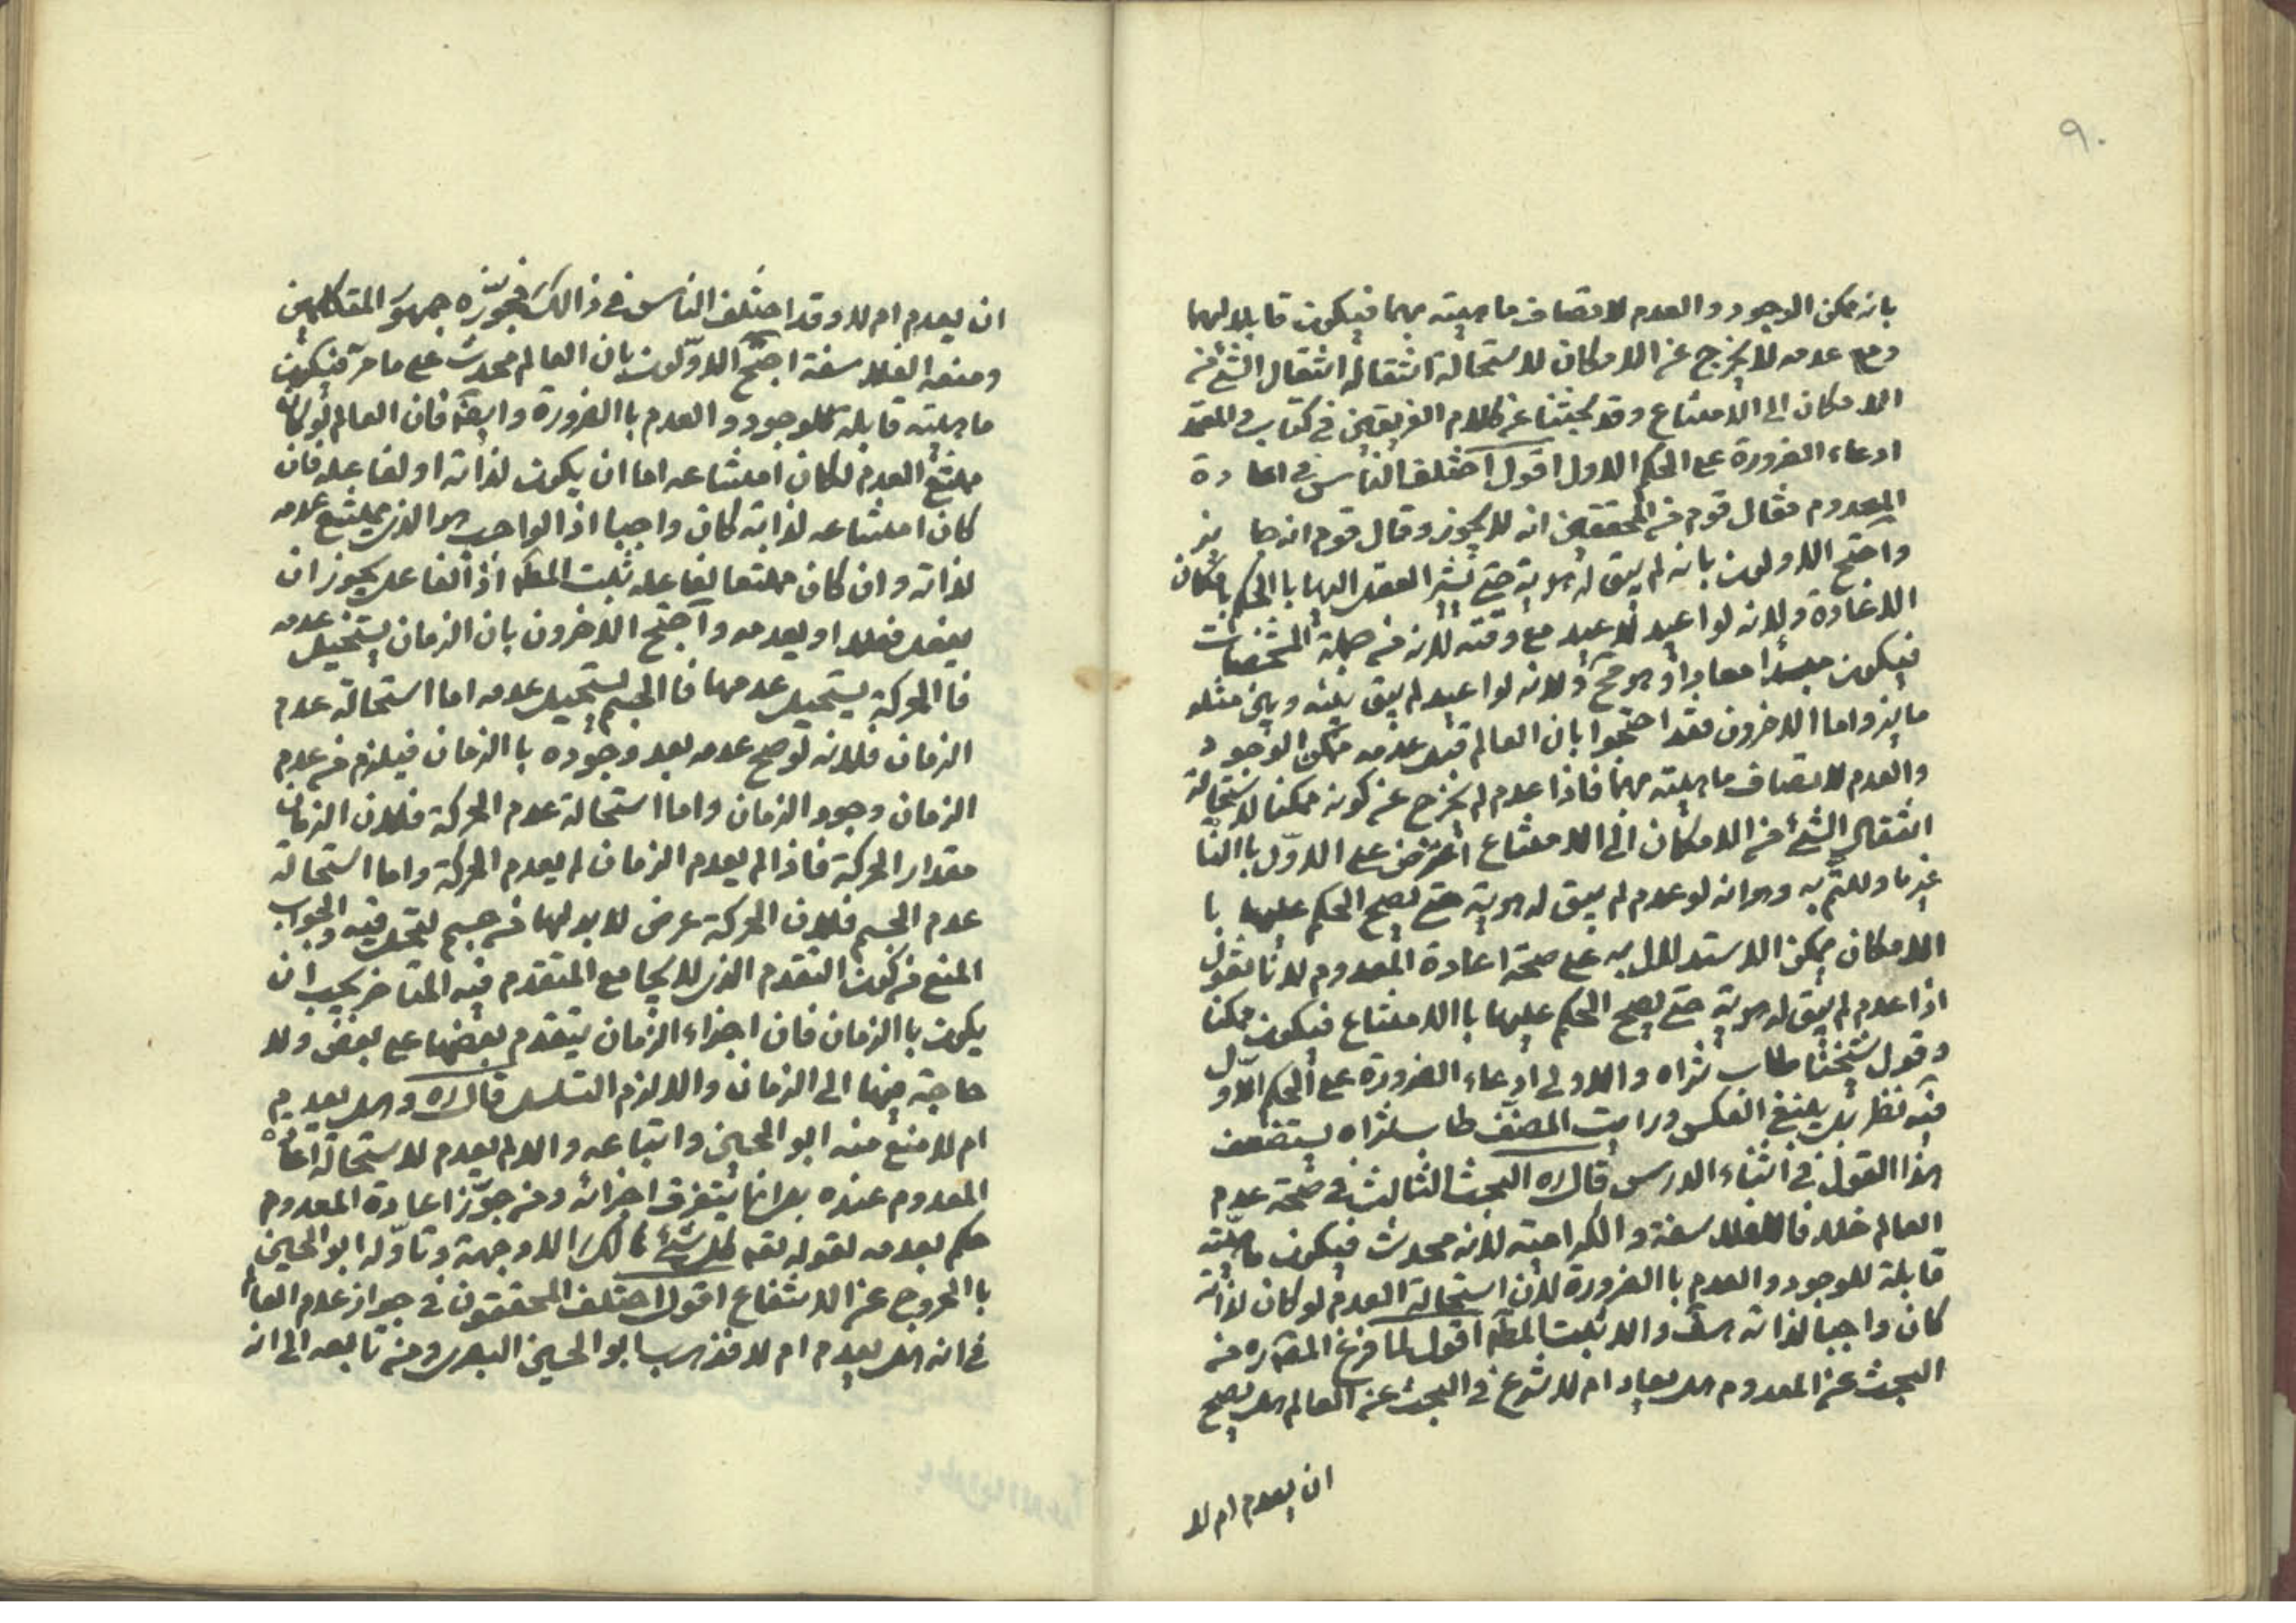 ٩٠
بانه ممكن الوجود والعدم لاتصاف ماهيته بهما فيكون قابلا لهما
ومع عدمه لا يخرج عن الامكان لاستحالة انتقاله انتقال الشئ من
الامكان الى الامتناع وقد بحثنا عن كلام الفريقين في كتاب والمعتمد
ادعاء الضرورة على الحكم الاول اقول اختلف الناس في اعادة
المعدوم فقال قوم من المحققين انه لا يجوز وقال قوم انه جايز
واحتج الاولون بانه لم يبق له هوية حتى تشير العقل اليها باالحكم بامكان
الاعادة ولانه لو اعيد لاعيد مع وقته لانه من جملة المشخصات
فيكون مبتدأ معادا وهو مح ولانه لو اعيد لم يبق بينه وبين مثله
مايز واما الاخرون فقد احتجوا بان العالم قبل عدمه ممكن الوجود
والعدم لاتصاف ماهيته بهما فاذا عدم لم يخرج عن كونه ممكنا لاستحالة
انتقال الشئ من الامكان الى الامتناع اعترض على الاول باالنا
غير ما ولعتم به وهو انه لو عدم لم يبق له هوية حتى يصح الحكم عليها با
الامكان يمكن الاستدلال به على صحة اعادة المعدوم لانا نقول
اذا عدم لم يبق له هوية حتى يصح الحكم عليها باالامتناع فيكون ممكنا
وقول شيخنا طاب ثراه والاولى ادعاء الضرورة على الحكم الاول
فيه نظر بل ينبغ العكس ورايت المصنف طاب ثراه يستضعف
هذا القول في اثناء الدرس قال ره البحث الثالث في صحة عدم
العالم خلافا للفلاسفة والكرامية لانه محدث فيكون ماهيته
قابلة للوجود والعدم باالضرورة لان استحالة العدم لو كان لذاته
كان واجبا لذاته هف والا ثبت المط اقول لما فرغ المصـ ره من
البحث عن المعدوم هل يعاد ام لا شرع في البحث عن العالم هل يصح
ان يعدم ام لا
ان يعدم ام لا وقد اختلف الناس في ذالك فجوزه جمهور المتكلمين
ومنعه الفلاسفة احتج الاولون بان العالم محدث على ما مر فيكون
ماهيته قابلة للوجود والعدم باالضرورة وايضا فان العالم لو كان
ممتنع العدم لكان امتناعه اما ان يكون لذاته او لفاعله فان
كان امتناعه لذاته كان واجبا اذ الواجب هو الذي يمتنع عدمه
لذاته وان كان ممتنعا لفاعله ثبت المط اذ الفاعل يجوز ان
يفعل فعلا او يعدمه واحتج الاخرون بان الزمان يستحيل عدمه
فاالحركة يستحيل عدمها فاالجسم يستحيل عدمه اما استحالة عدم
الزمان فلانه لو صح عدمه بعد وجوده باالزمان فيلزم من عدم
الزمان وجود الزمان واما استحالة عدم الحركة فلان الزمان
مقدار الحركة فاذا لم يعدم الزمان لم يعدم الحركة واما استحالة
عدم الجسم فلان الحركة عرض لا بد لها من جسم ليحل فيه والجواب
المنع من كون التقدم الذي لا يجامع المتقدم فيه المتاخر يجب ان
يكون باالزمان فان اجزاء الزمان يتقدم بعضها على بعض ولا
حاجة منها الى الزمان والا لزم التسلسل قال ره وهل يعدم
ام لا منع منه ابو الحسين واتباعه والا لم يعدم لاستحالة اعادة
المعدوم عنده بعد انما يتفرق اجزائه ومن جوز اعادة المعدوم
حكم بعدمه لقوله تعه كل شئ هالك الا وجهه وتاوله ابو الحسين
باالخروج عن الانتفاع اقول اختلف المحققون في جواز عدم العا
في انه هل يعدم ام لا فذهب ابو الحسين البصري ومن تابعه الى انه